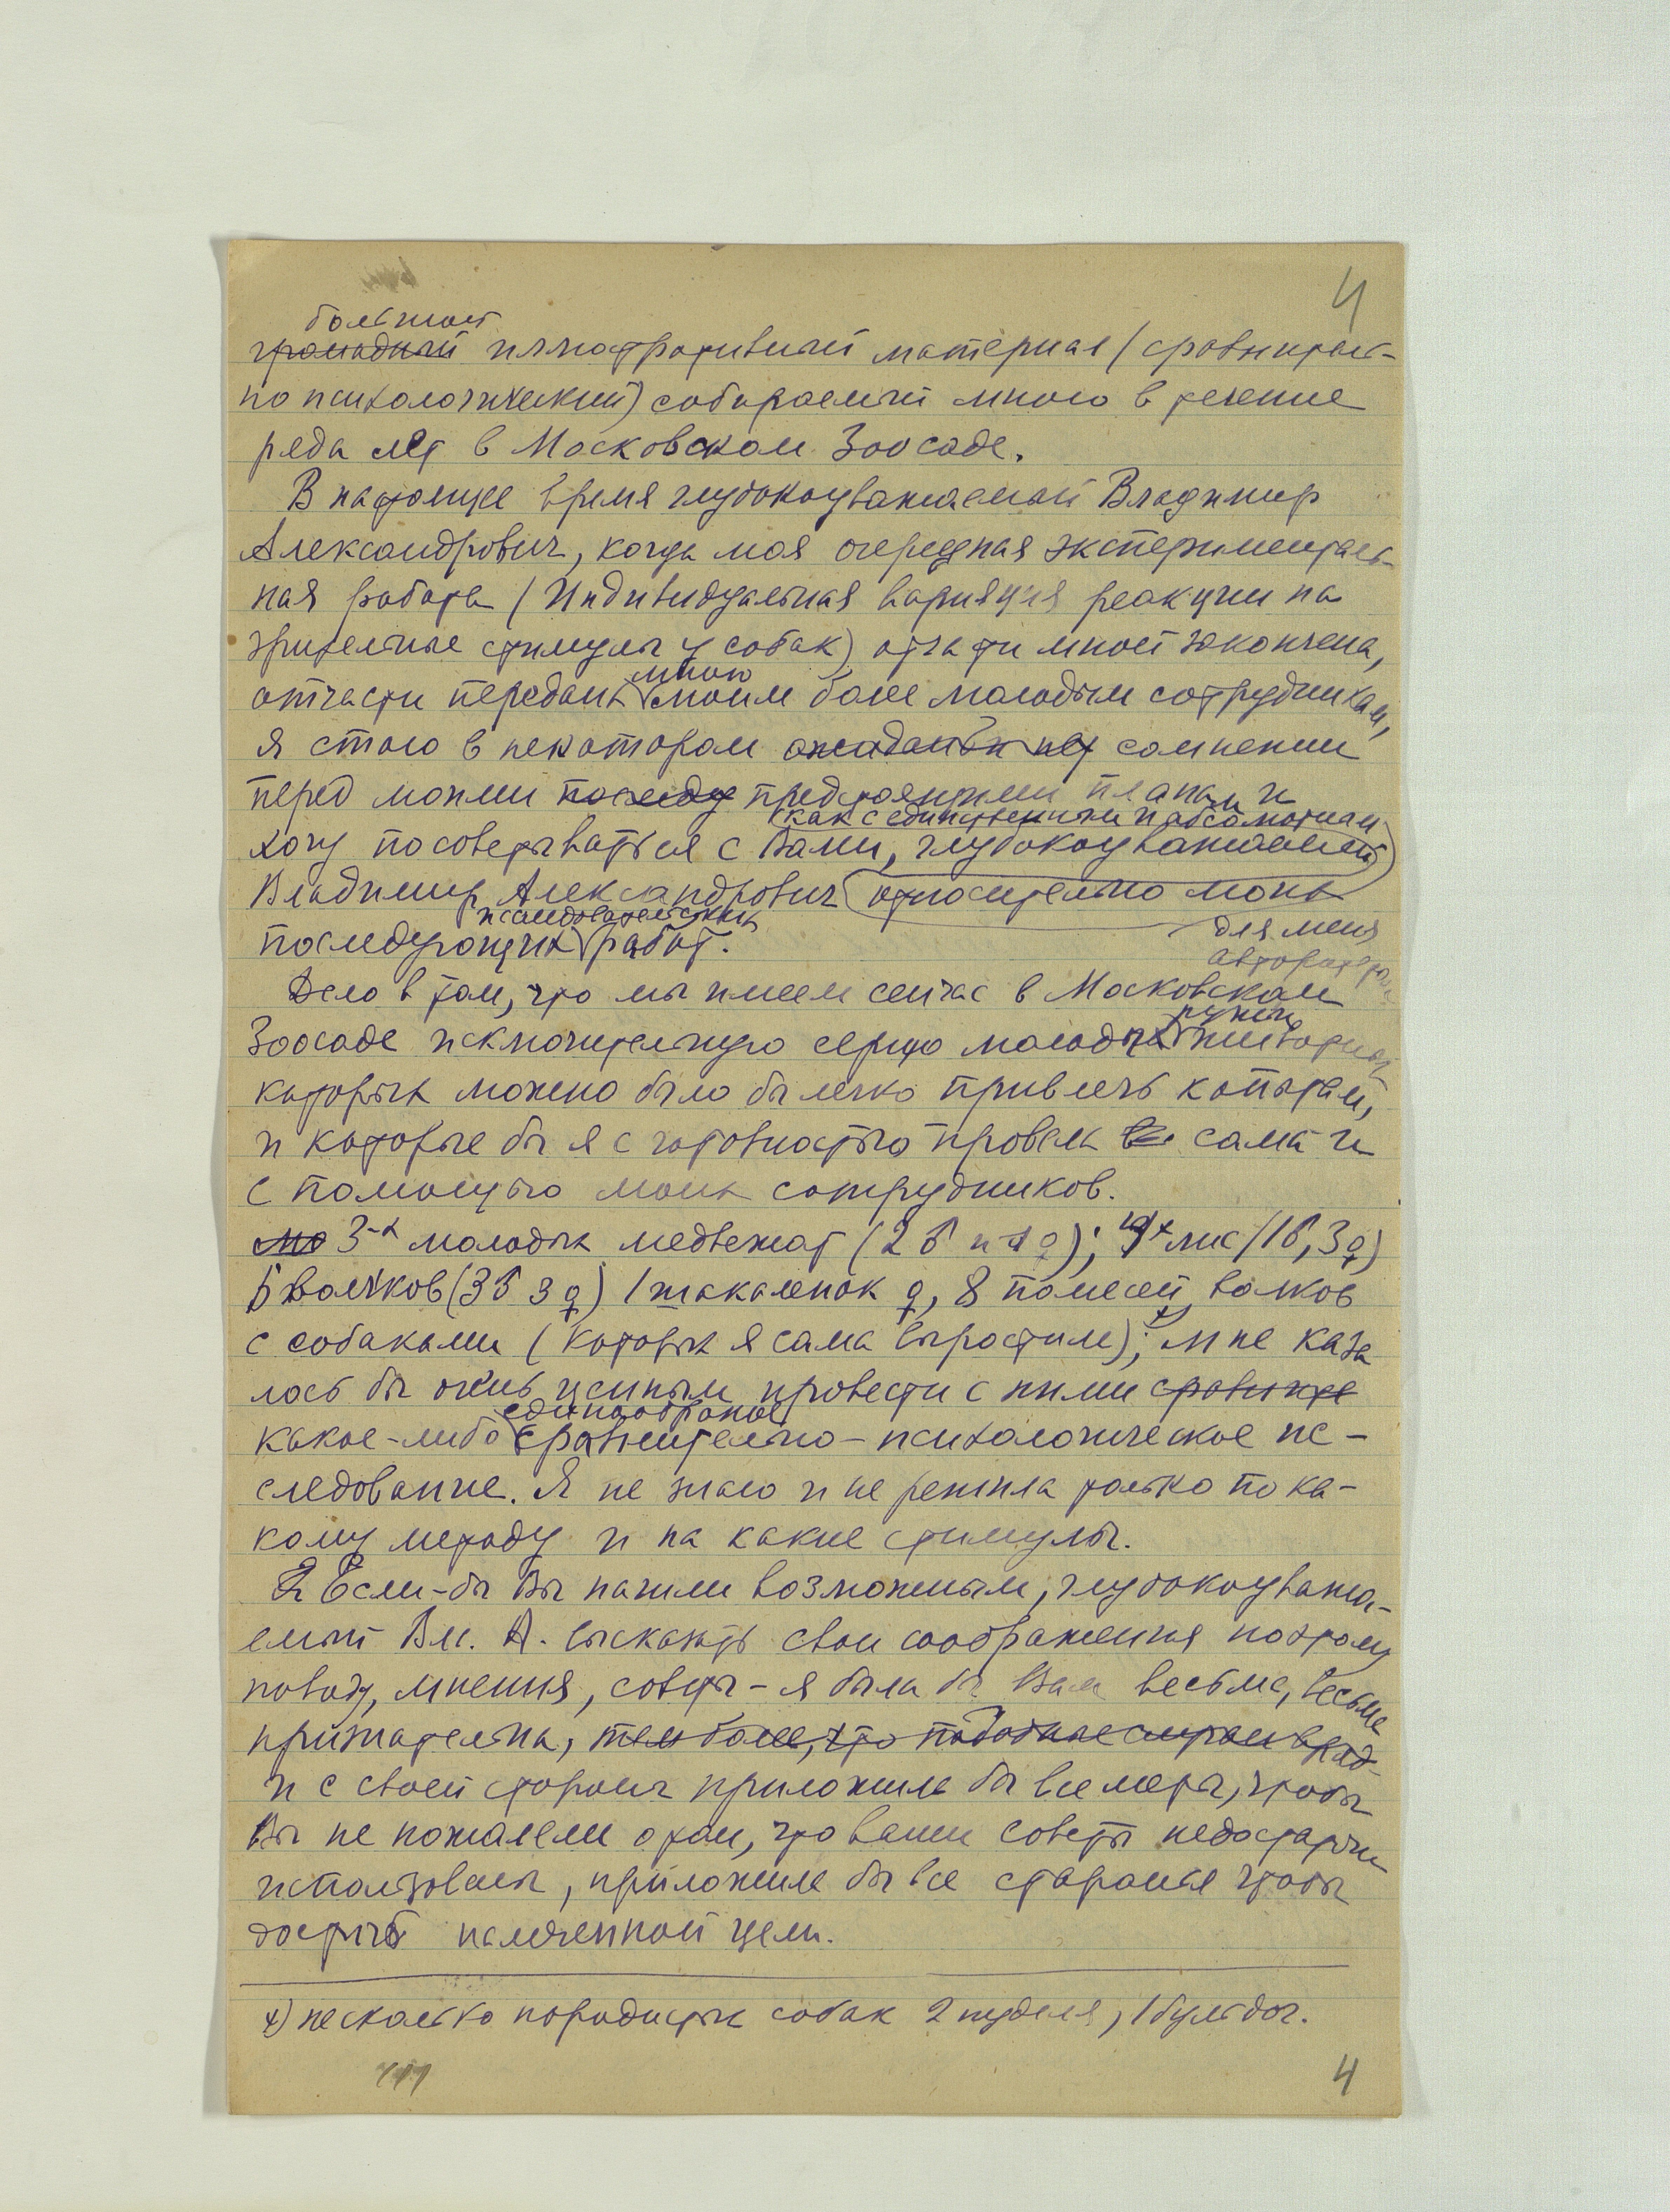 4
большой
громадный иллюстративный материал (сравнитель-
но психологический) собираемый мною в течение
ряда лет в Московском Зоосаде.
В настоящее время глубокоуважаемый Владимир
Александрович, когда моя очередная эксперименталь-
ная работа (Индивидуальная вариация реакции на
зрительные стимулы у собак) отчасти мной закончена,
мною
отчасти передана моим более молодым сотрудникам,
я стою в некотором сомнении
перед моими предстоящими планами и
как с единственным и абсолютным
хочу посоветываться с Вами, глубокоуважаемый
Владимир Александрович относительно моих
исследовательских
последующих работ.
для меня
авторитетом
Дело в том, что мы имеем сейчас в Московском
ручных
Зоосаде исключительную серию молодых животных
которых можно было бы легко привлечь к опытам,
и которые бы я с готовностью провела сама и
с помощью моих сотрудников.
3-х молодых медвежат (2 ♂ и 1 ♀); 4х лис (1♂, 3♀)
6 волчков (3♂ 3♀) 1 шакаленок ♀, 8 помесей волков
с собаками (которых я сама выростила);x) мне каза
лось бы очень ценным провести с ними сравните
единообразное
какое-либо сравнительно-психологическое ис-
следование. Я не знаю и не решила только по ка-
кому методу и на какие стимулы.
Если-бы Вы нашли возможным, глубокоуважа-
емый Вл. А. высказать свои соображения по этому
поводу, мнения, советы - я была бы Вам весьма, весьма
признательна, тем более, что подобные
и с своей стороны приложила бы все меры, чтобы
Вы не пожалели о том, что ваши советы недостаточно
использованы, приложила бы все старания чтобы
достичь намеченной цели.
x) несколько породистых собак 2 пуделя, 1 бульдог.
4